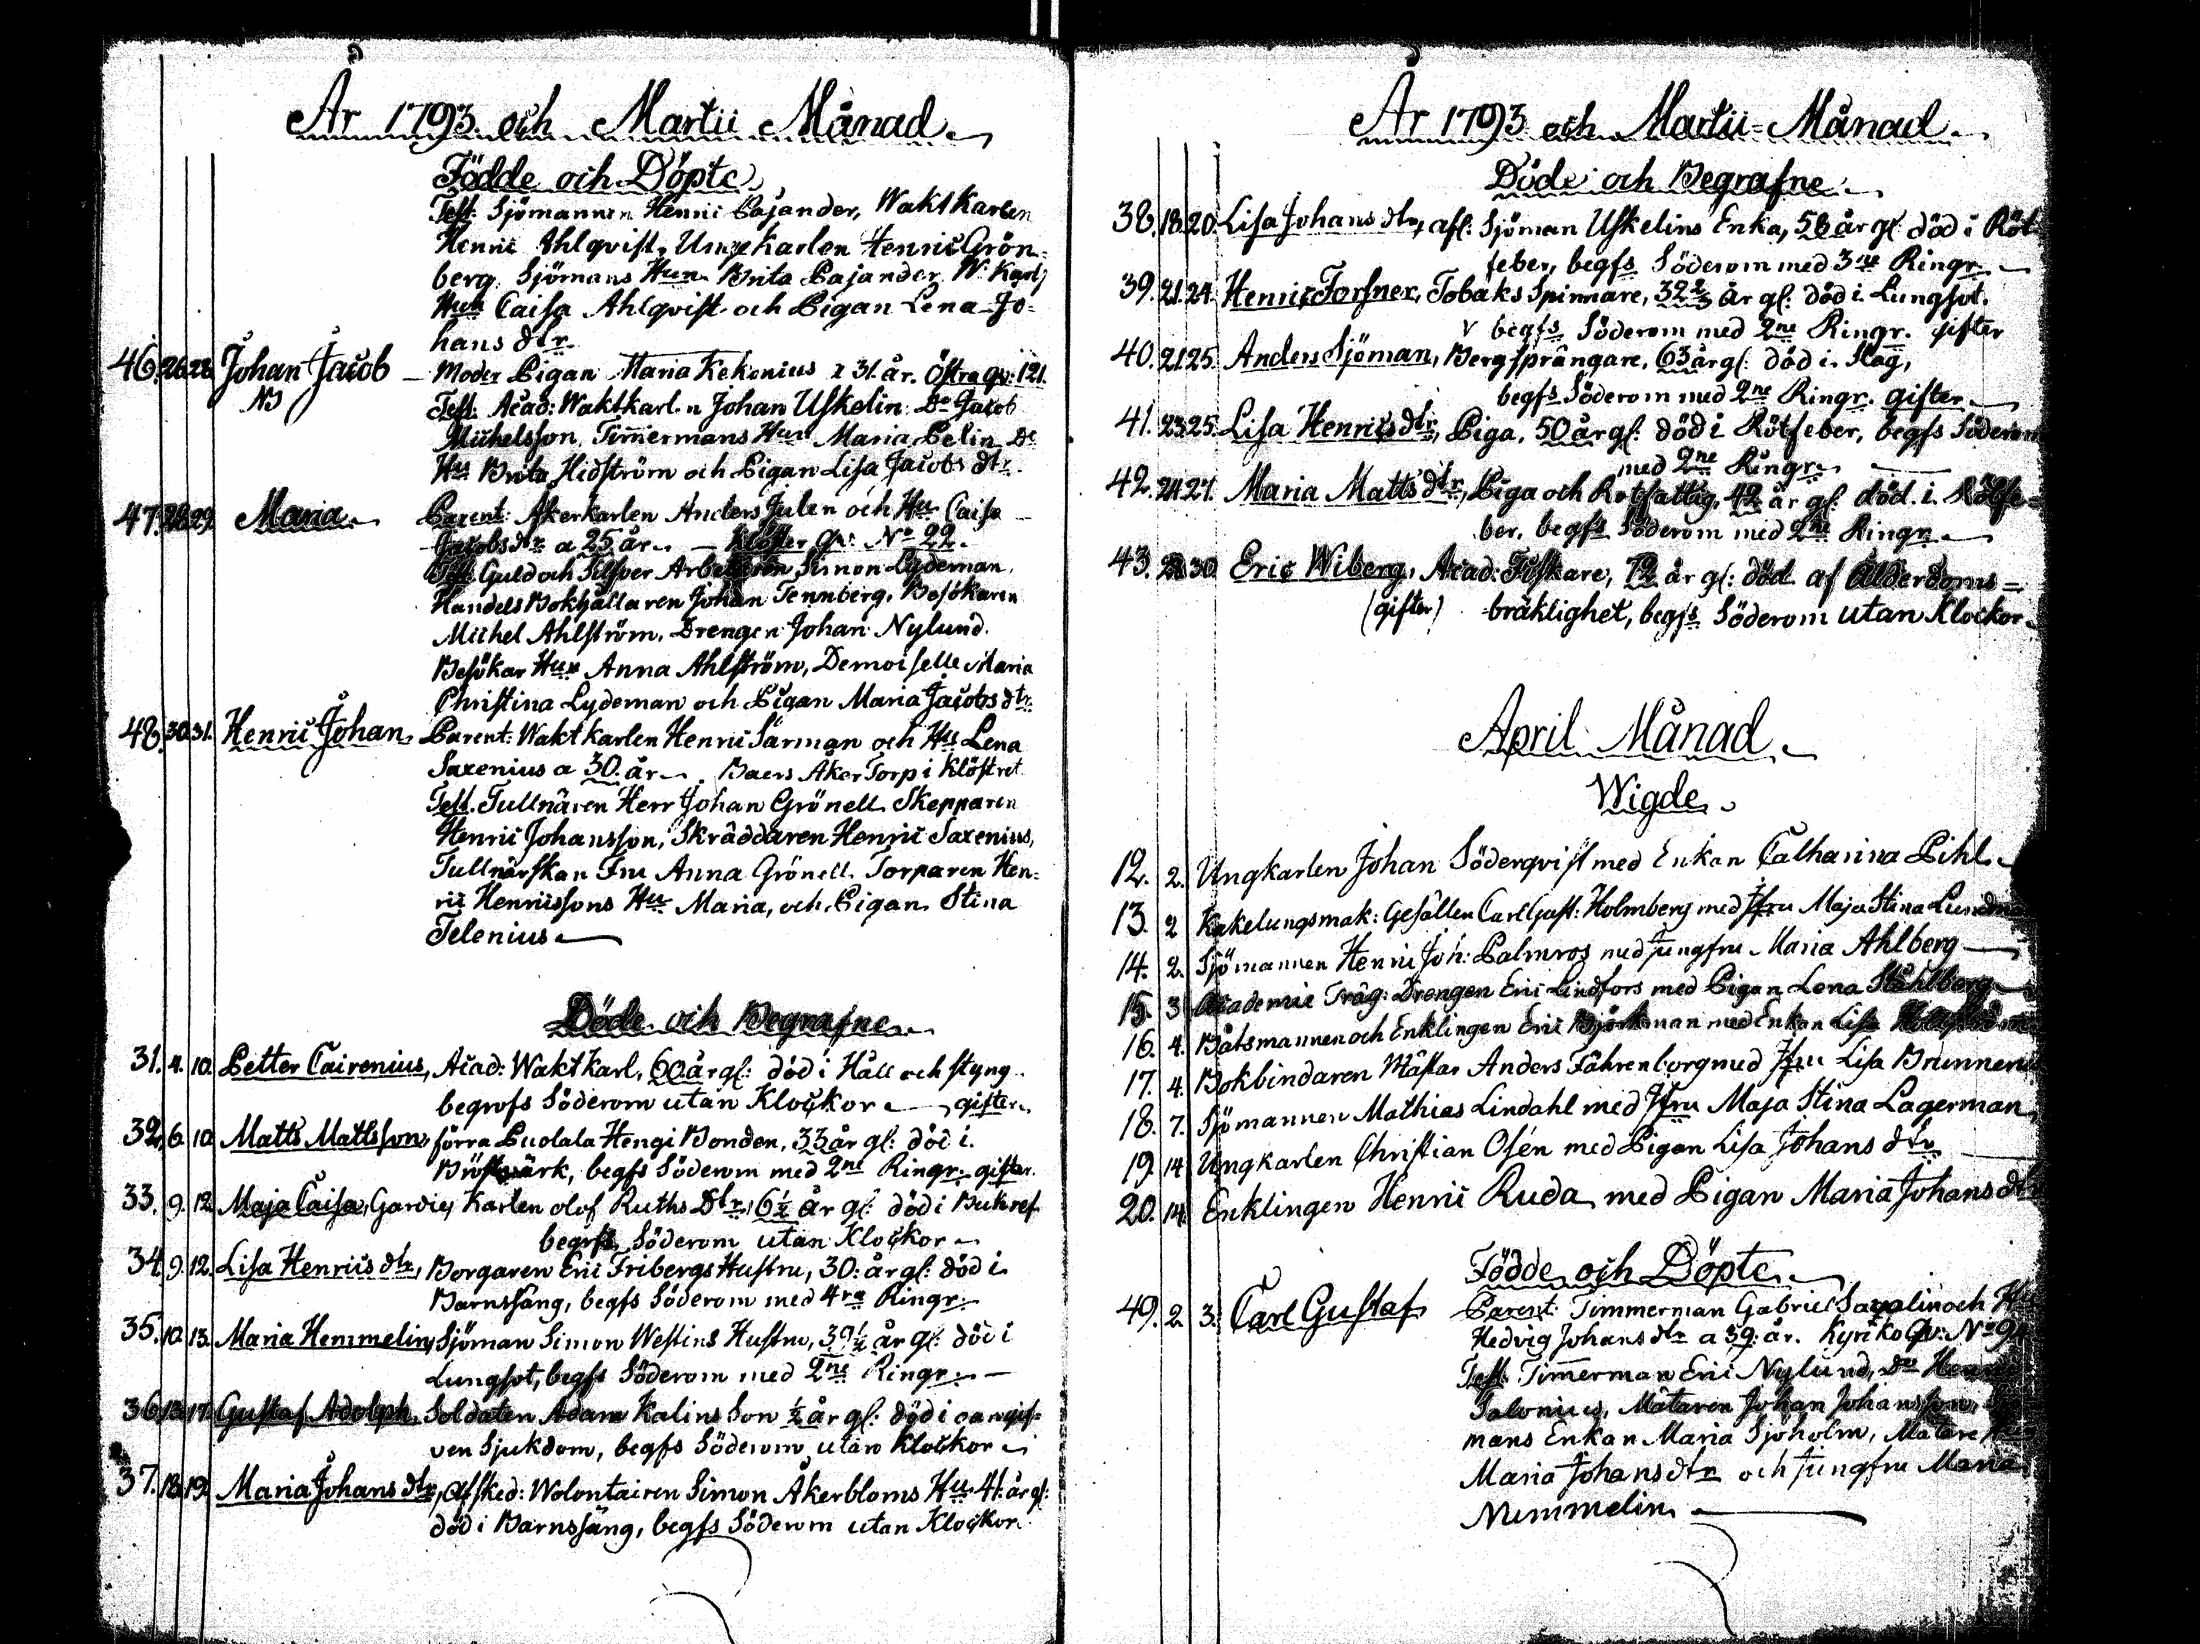 År 1793 och Martii Månad.
Födde och Döpte
Test: Sjömannen Henric Pajander, Waktkarlen
Henric Ahlqvist, Karlen Henric Grön-
berg. Sjömans Hun Brita Pajander W: Karls
Hun Caisa Ahlqvist och Pigan Lena Jo-
hans dtr.
46. 26. Johan Jacob — Moder Pigan Maria Kekonius a 31. år. Östra qv: 121.
NB Test. Acad: Waktkarl. n Johan Uskelin. Do Jacob
Michelsson, Timmermans Hun Maria Pelin Do
Hu Brita Hidström och Pigan Lisa Jacobs dtr.
47. 28. 29. Maria. Parent: Åkerkarlen Anders Julin och Hu Caisa
Jacobsdtr a 25 år. — Kloster Qv: No 22.
Test. Guld och Silfver Arbetaren Simon Lydeman,
Handels Bokhållaren Johan Tennberg, Besökaren
Michel Ahlström, Drengen Johan Nylund.
Besökar Hun Anna Ahlström, Demoiselle Maria
Christina Lydeman och Pigan Maria Jacobs dtr.
48. 30. 31. Henric Johan, Parent: Waktkarlen Henric Särman och Hu Lena
Saxenius a 30. år. Baers Åker Torp i Klöstret
Test. Tullnären Herr Johan Grönell. Skepparen
Henric Johansson, Skräddaren Henric Saxenius,
Tullnärskan Fru Anna Grönell. Torparen Hen-
ric Henricssons Hu Maria, och Pigan Stina
Telenius
Döde och Begrafne.
31. 4. 10. Petter Cairenius, Acad: Waktkarl, 60 år gl: död i Håll och styng
begrofs Söderom utan Klockor gifter.
32. 6. 10. Matts Mattsson, förra Puolala Hengi Bonden, 33 år gl: död i
Bröstwärk, begfs Söderom med 2ne Ringr: gifter.
33. 9. 12. Maja Caisa, Karlen Olof Ruths Dtr, 6½ år gl: död i Bukref
begrfs Söderom utan Klockor
34. 9. 12. Lisa Henrics dtr, Borgaren Eric Fribergs Hustru, 30. år gl: död i
Barnssäng, begfs Söderom med 4ra Ringr.
35. 10. 13. Maria Hemmelin, Sjöman Simon Westins Hustru, 39½ år gl: död i
Lungsot, begfs Söderom med 2ne Ringr. —
36. 17. Gustaf Adolph, Soldaten Adam Kalins Son ½ år gl: död i oangif-
ven Sjukdom, begfs Söderom utan Klockor
37. 18. 19. Maria Johans dtr, Afsked: Wolontairen Simon Åkerbloms Hu 41. år gl:
död i Barnssäng, begfs Söderom utan Klockor.
År 1793 och Martii Månad.
Döde och Begrafne.
38. 18. 20. Lisa Johans dtr, afl: Sjöman Uskelins Enka, 58 år gl: död i Röt-
feber, begfs Söderom med 3ne Ringr.
39. 21. 24. Henric Forsner, Tobaks Spinnare, 32 år gl: död i Lungsot.
begfs Söderom med 2ne Ringr. gifter
40. 21. 25. Anders Sjöman, Bergsprängare, 63 år gl: död i Slag,
begfs Söderom med 2ne Ringr. gifter.
41. 23. 25. Lisa Henrics dtr, Piga, 50 år gl: död i Rötfeber, begfs Söderom
med 2ne Ringr.
42. 24. 27. Maria Matts dtr, Piga och Rotfattig, 42 år gl: död i Rötfe-
ber, begfs Söderom med 2ne Ringr.
43. 30. Eric Wiberg, Acad: Fiskare, 72 år gl: död af Ålderdoms-
(gifter) bräklighet, begfs Söderom utan Klockor.
April Månad.
Wigde.
12. 2. Ungkarlen Johan Söderqvist med Enkan Catharina Pihl.
13. 2. Kakelungsmak: Gesällen Carl Gust: Holmberg med Jfru Maja Stina
14. 2. Sjömannen Henric Joh: Palmros med Jungfru Maria Ahlberg
15. 3. Academie Träg: Drengen Eric Lindfors med Pigan Lena Ståhlberg
16. 4. Båtsmannen och Enklingen Eric Björkman med Enkan Lisa
17. 4. Bokbindaren Mästar Anders Fåhrenborg med Jfru Lisa
18. 7. Sjömannen Mathias Lindahl med Jfru Maja Stina Lagerman
19. 14. Ungkarlen Christian Osén med Pigan Lisa Johans dtr
20. 14. Enklingen Henric Ruda med Pigan Maria Johans dtr
Födde och Döpte.
49. 2. 3. Carl Gustaf Parent: Timmerman Gabriel och
Hedvig Johans dtr a 39. år. Kyrko Qv: No
Test. Timmerman Eric Nylund, Do
Salonius, Mätaren Johan Johansson,
mans Enkan Maria Sjöholm, Mätare
Maria Johansdtr och Jungfru Maria
Nummelin